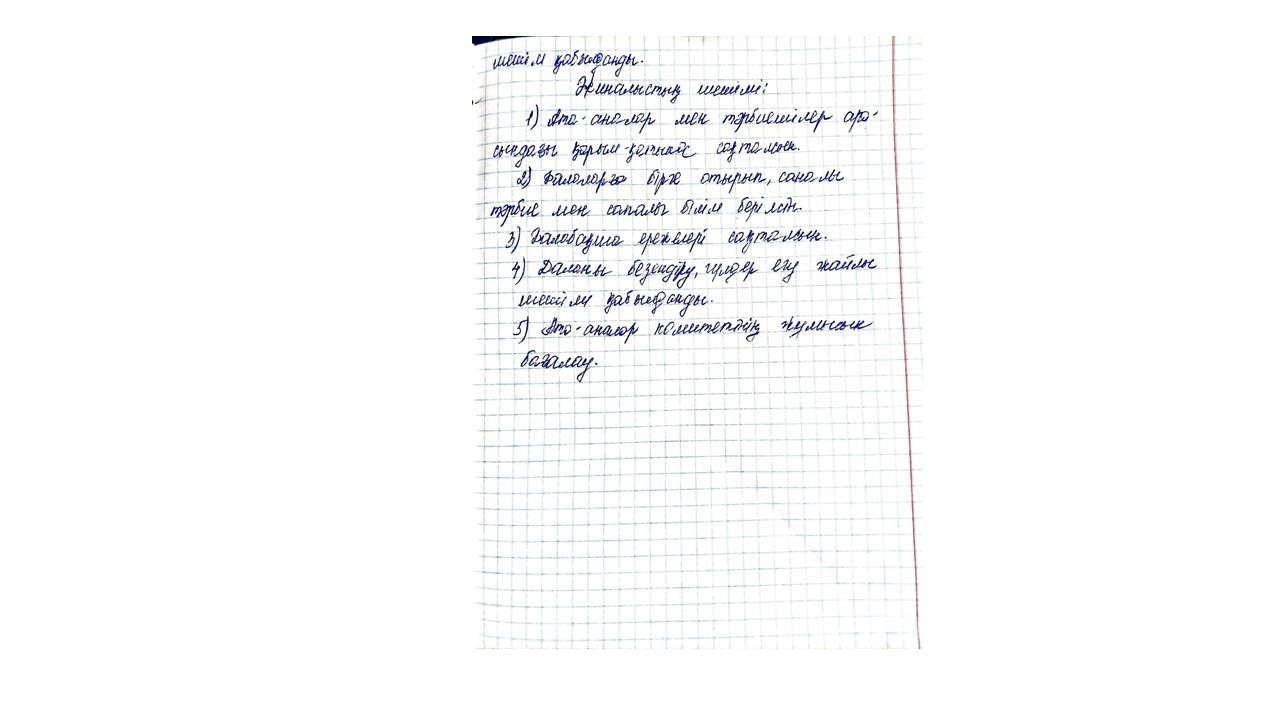 шешім қабылданды.
Жиналыстың шешімі:
1) Ата-аналар мен тәрбиешілер ара-
сындағы қарым-қатынас сақталсын.
2) Балаларға бірге отырып, саналы
тәрбие мен сапалы білім берілсін.
3) Балабақша ережелері сақталсын.
4) Даланы безендіру, гүлдер егу жайлы
шешім қабылданды.
5) Ата-аналар комитетінің жұмысын
бағалау.